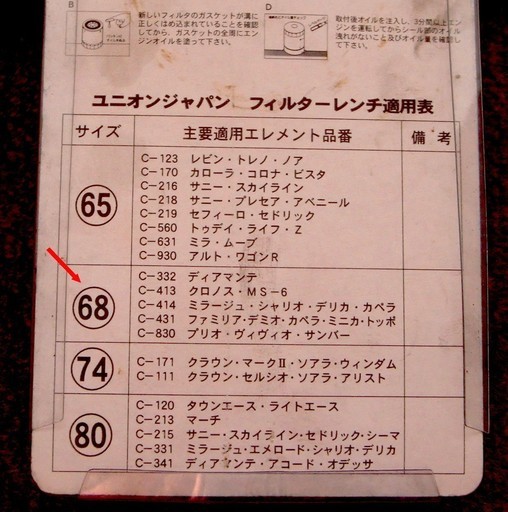 B
新しいフィルタのガスケットが溝に
正しくはめ込まれていることを確認
してから、ガスケットの全周にエン
ジンオイルを塗って下さい。
D
取付後オイルを注入し、3分間以上エン
ジンを運転してからシール部のオイル
洩れがないこと及びオイル量を確認し
て下さい。
ユニオンジャパン フィルターレンチ適用表
サイズ 主要適用エレメント品番 備考
65
C-123 レビン・トレノ・ノア
C-170 カローラ・コロナ・ビスタ
C-216 サニー・スカイライン
C-218 サニー・プレセア・アベニール
C-219 セフィーロ・セドリック
C-560 トゥデイ・ライフ・Z
C-631 ミラ・ムーブ
C-930 アルト・ワゴンR
68
C-332 ディアマンテ
C-413 クロノス・MS-6
C-414 ミラージュ・シャリオ・デリカ・カペラ
C-431 ファミリア・デミオ・カペラ・ミニカ・トッポ
C-830 プリオ・ヴィヴィオ・サンバー
74
C-171 クラウン・マークⅡ・ソアラ・ウィンダム
C-111 クラウン・セルシオ・ソアラ・アリスト
80
C-120 タウンエース・ライトエース
C-213 マーチ
C-215 サニー・スカイライン・セドリック・シーマ
C-331 ミラージュ・エメロード・シャリオ・デリカ
C-341 ディアマンテ・アコード・オデッサ